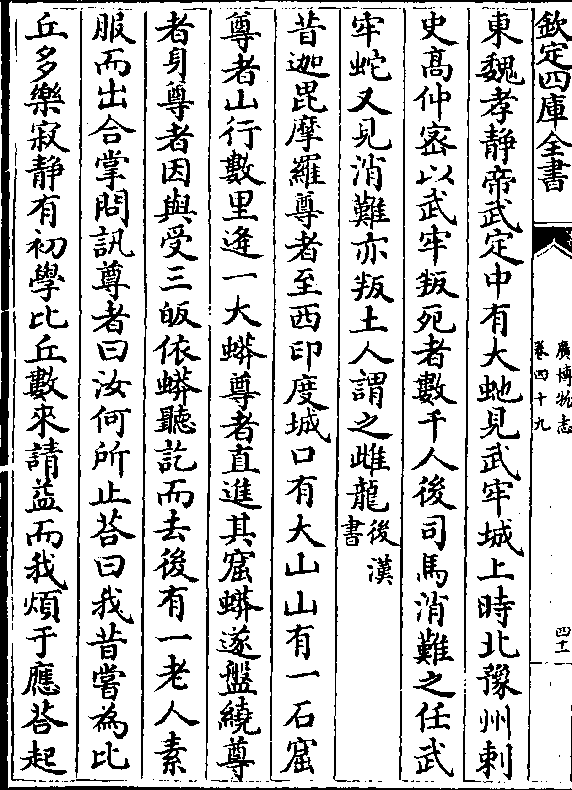 欽定四庫全書
廣博物志
卷四十九
四十
東魏孝静帝武定中有大虵見武牢城上時北豫州刺
史髙仲宻以武牢叛死者數千人後司馬消難之任武
牢蛇又見消難亦叛土人謂之雌龍後漢書
昔迦毘摩羅尊者至西印度城口有大山山有一石窟
尊者山行數里逢一大蟒尊者直進其窟蟒遂盤繞尊
者身尊者因與受三皈依蟒聽訖而去後有一老人素
服而出合掌問訊尊者曰汝何所止荅曰我昔嘗為比
丘多樂寂静有初學比丘數來請益而我煩于應荅起